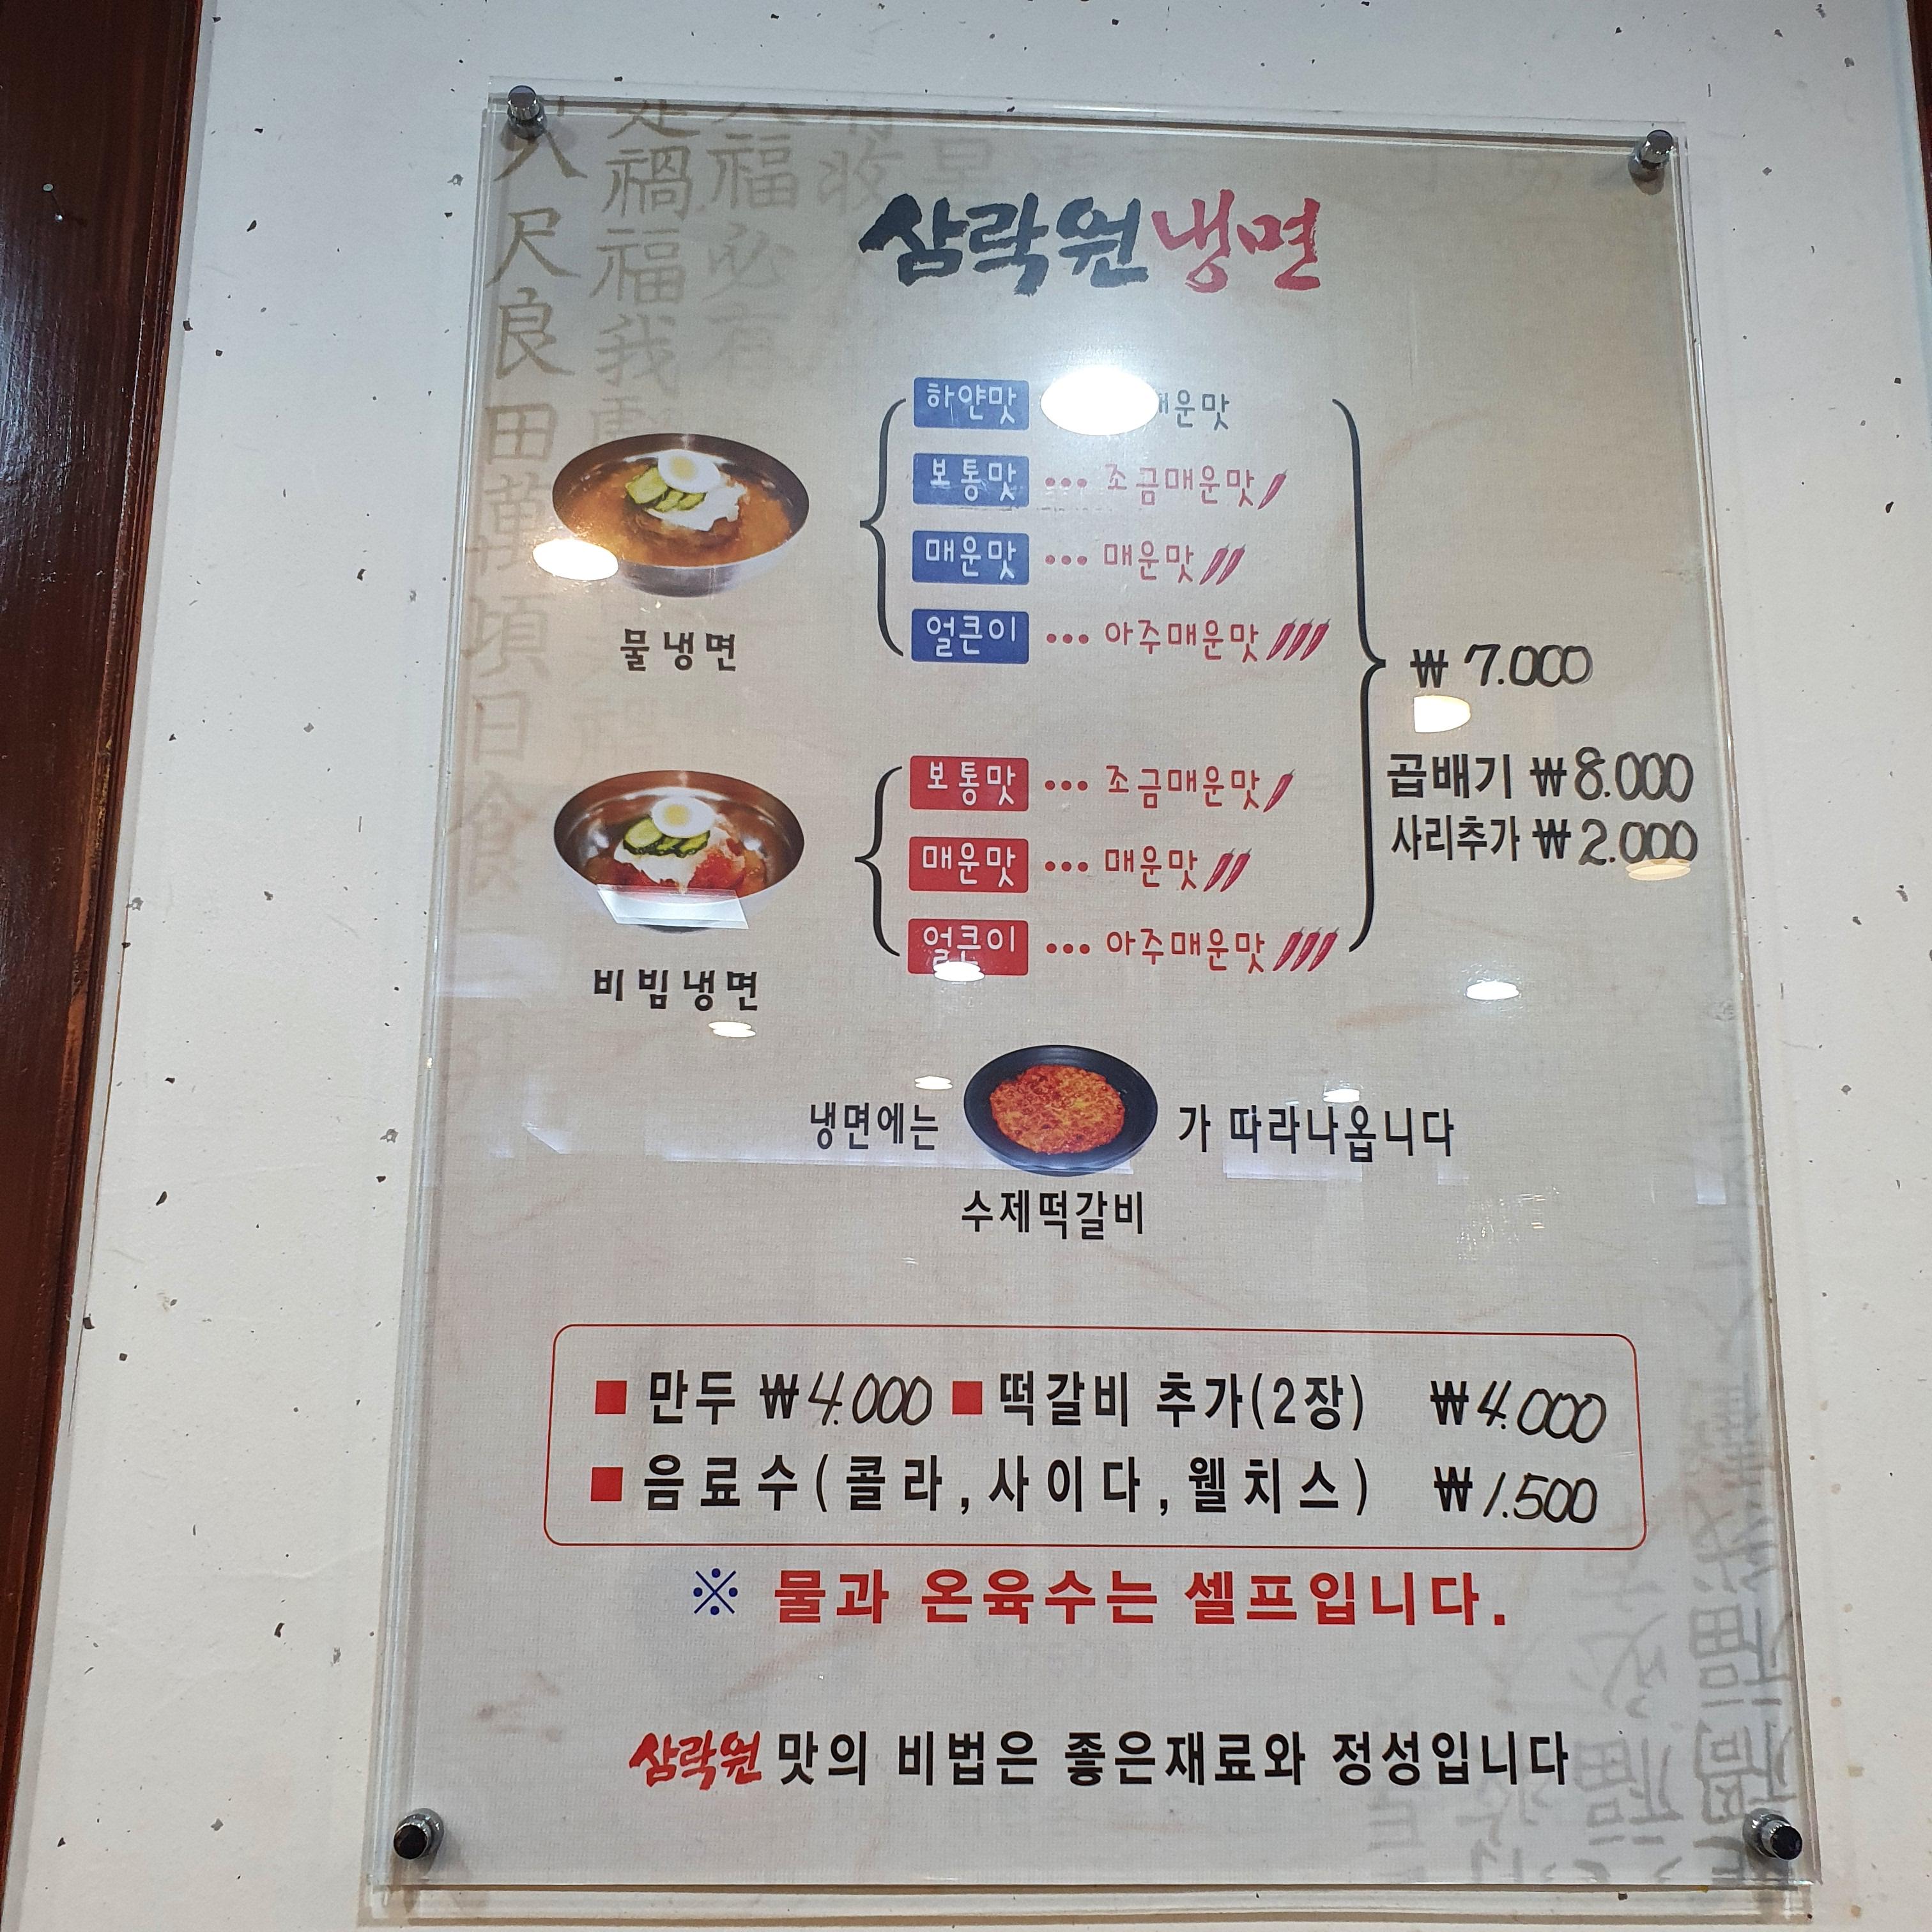 삼락원냉면
하얀맛 운맛
보통맛 ••• 조금매운맛
매운맛 ••• 매운맛
얼큰이 ••• 아주매운맛
물냉면
₩ 7.000
곱배기 ₩8.000
사리추가 ₩2.000
보통맛 ••• 조금매운맛
매운맛 ••• 매운맛
얼큰이 ••• 아주매운맛
비빔냉면
냉면에는 가 따라나옵니다
수제떡갈비
■ 만두 ₩4.000 ■ 떡갈비 추가(2장) ₩4.000
■ 음료수(콜라,사이다,웰치스) ₩1.500
※ 물과 온육수는 셀프입니다.
삼락원 맛의 비법은 좋은재료와 정성입니다